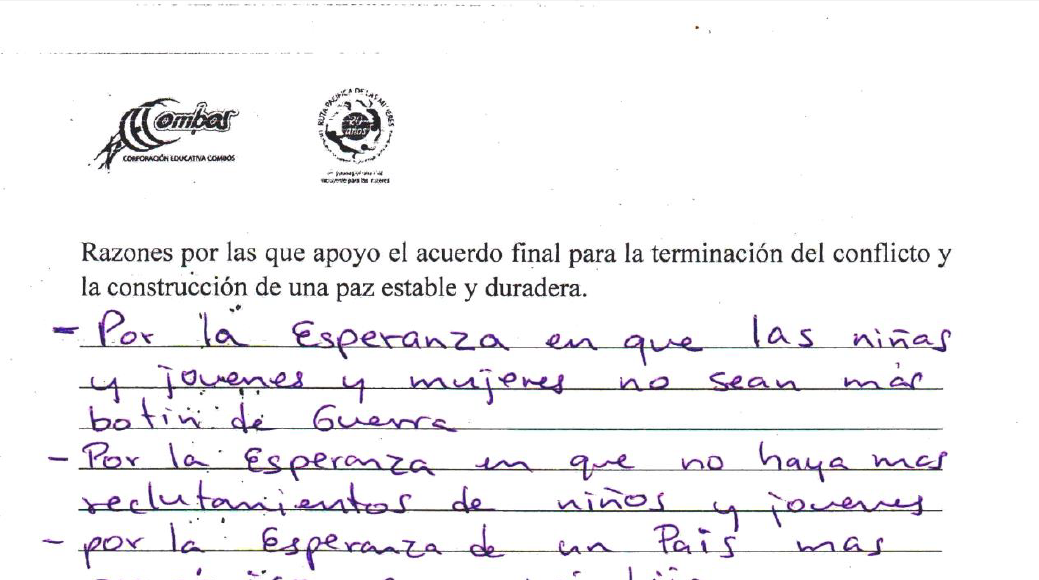 Combos
CORPORACIÓN EDUCATIVA COMBOS
RUTA PACÍFICA DE LAS MUJERES
20
años
Razones por las que apoyo el acuerdo final para la terminación del conflicto y
la construcción de una paz estable y duradera.
- Por la Esperanza en que las niñas
y jovenes y mujeres no sean más
botin de Guerra
- Por la Esperanza en que no haya mas
reclutamientos de niños y jovenes
- por la Esperanza de un País mas